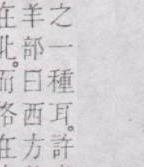 之一種耳。許
羊部曰西方
在北。而在